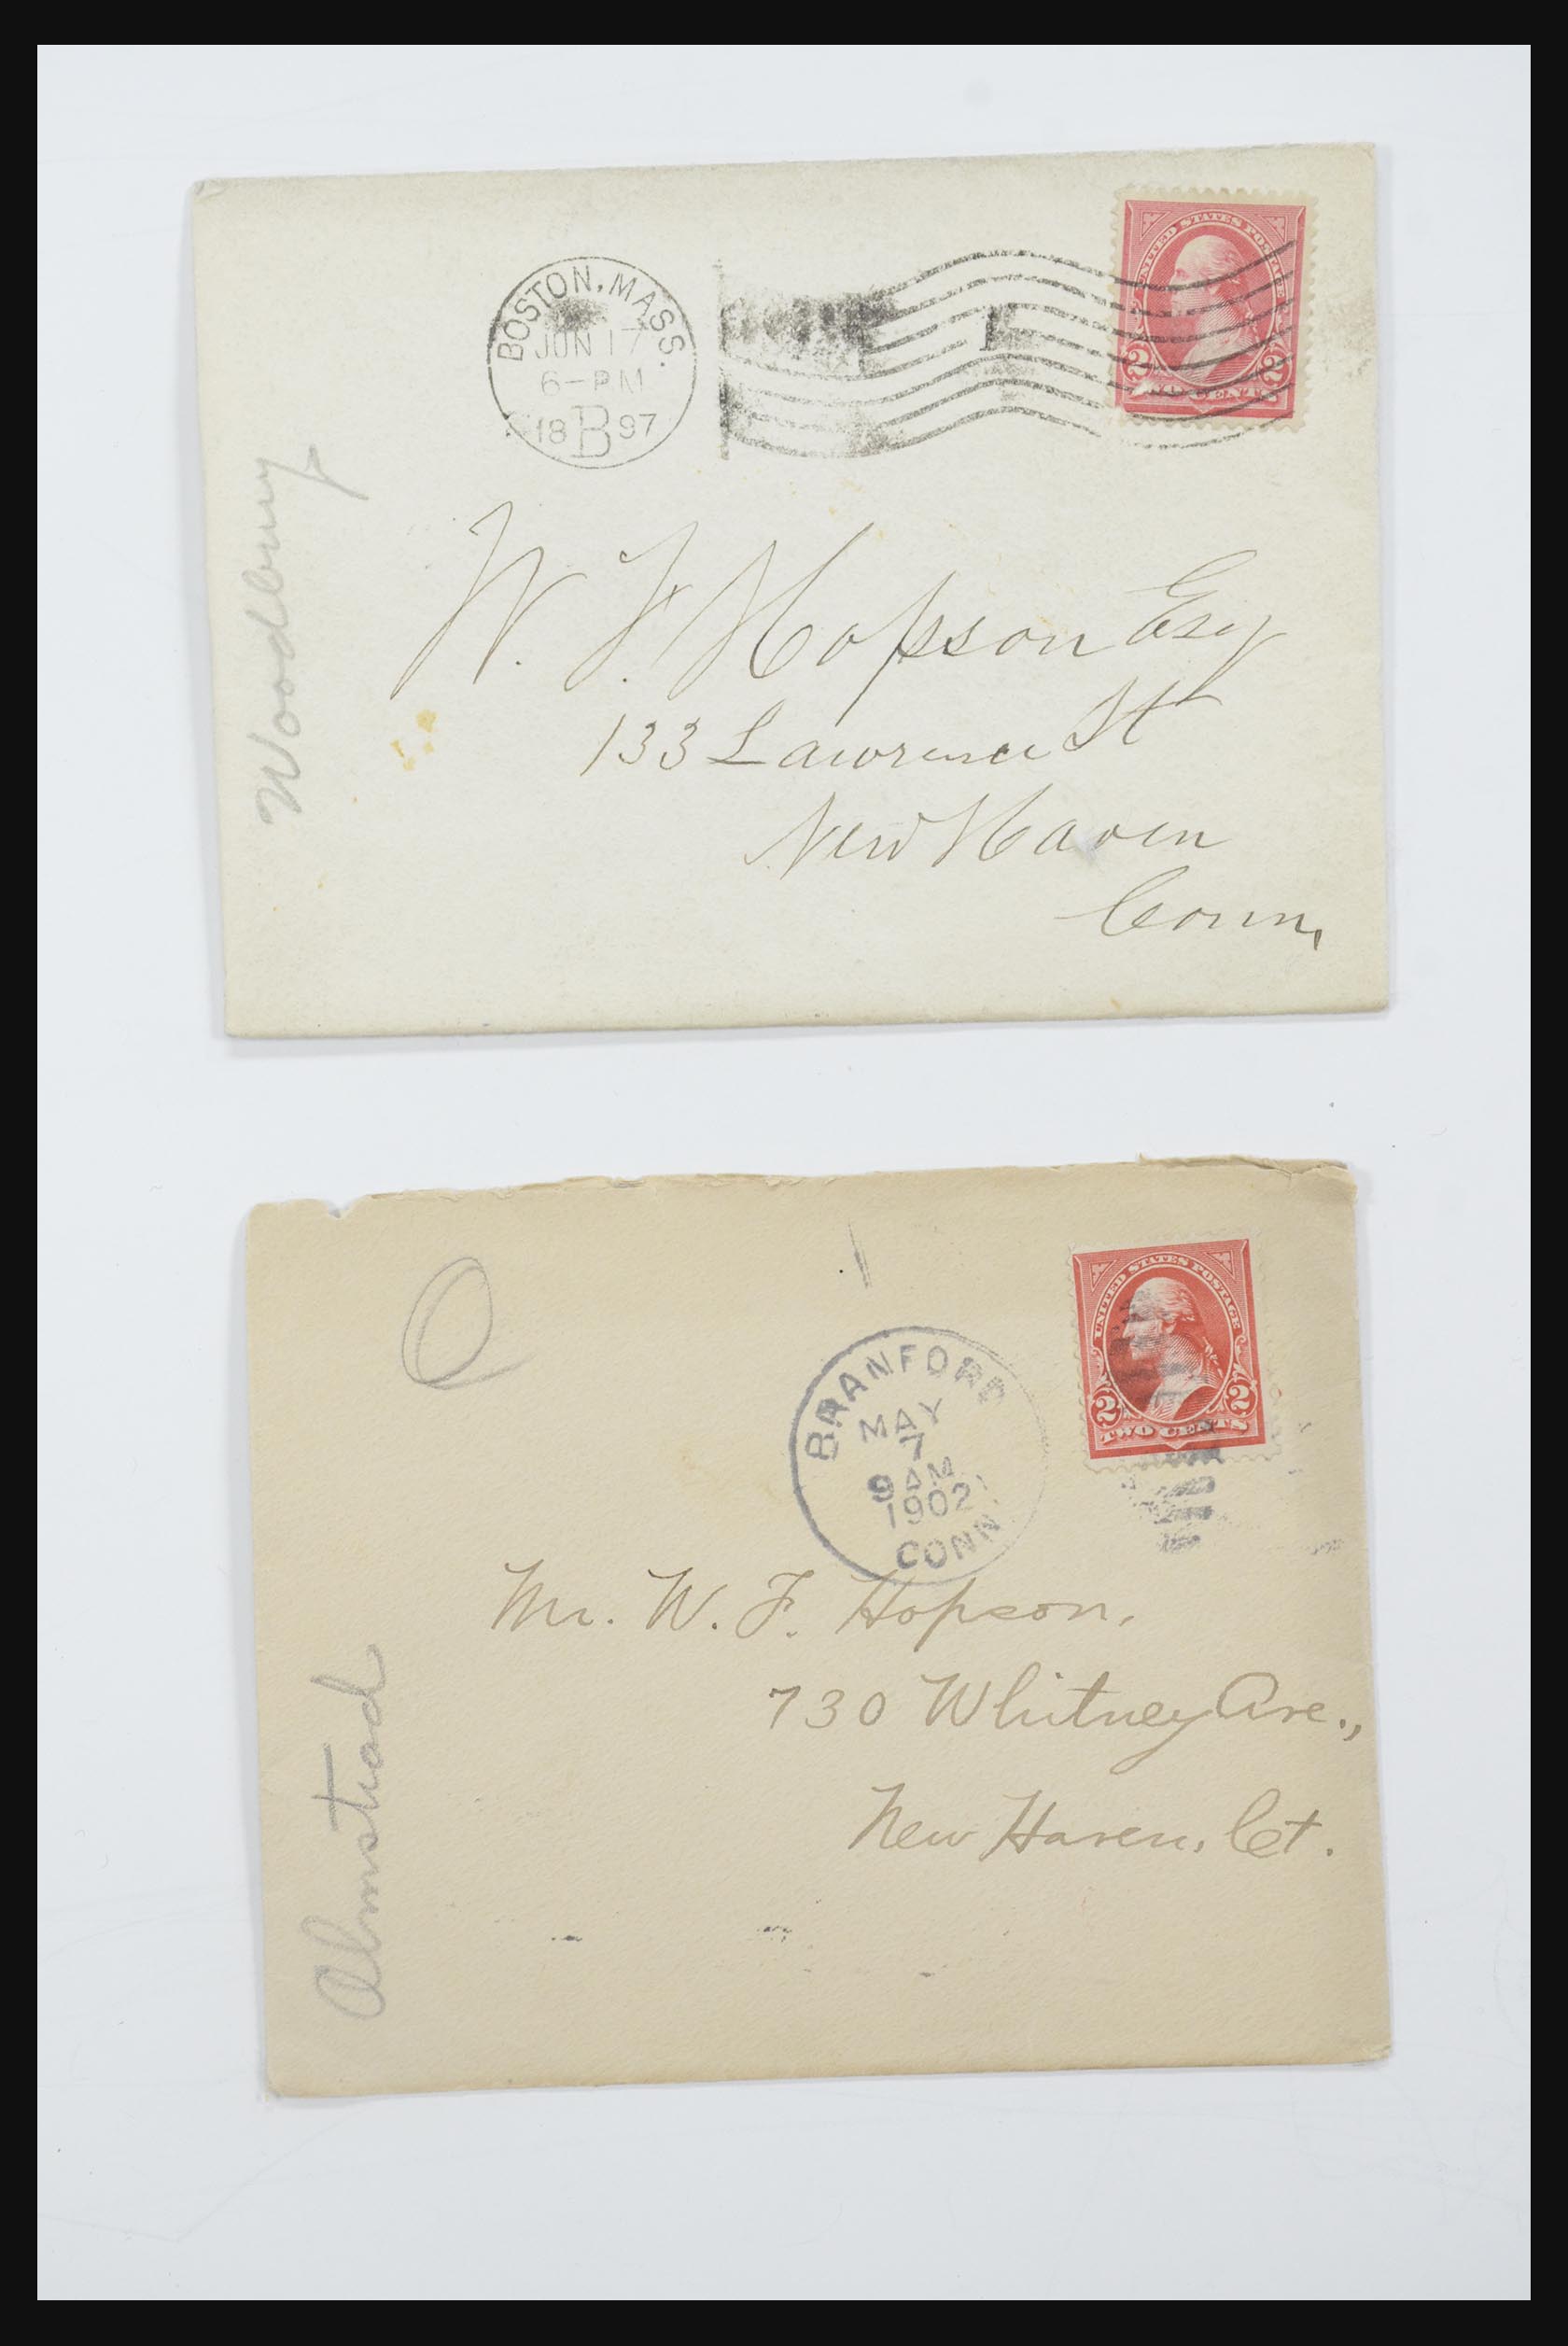 BOSTON, MASS.
JUN 17
6-PM
18 B 97
1
UNITED STATES POSTAGE
2 2
TWO CENTS
Woodbury
W. F. Hopson Esq
133 Lawrence St
New Haven
Conn,
BRANFORD
MAY
7
9 AM
1902
CONN
UNITED STATES POSTAGE
2 2
TWO CENTS
Mr. W. F. Hopson,
730 Whitney Ave.,
New Haven, Ct.